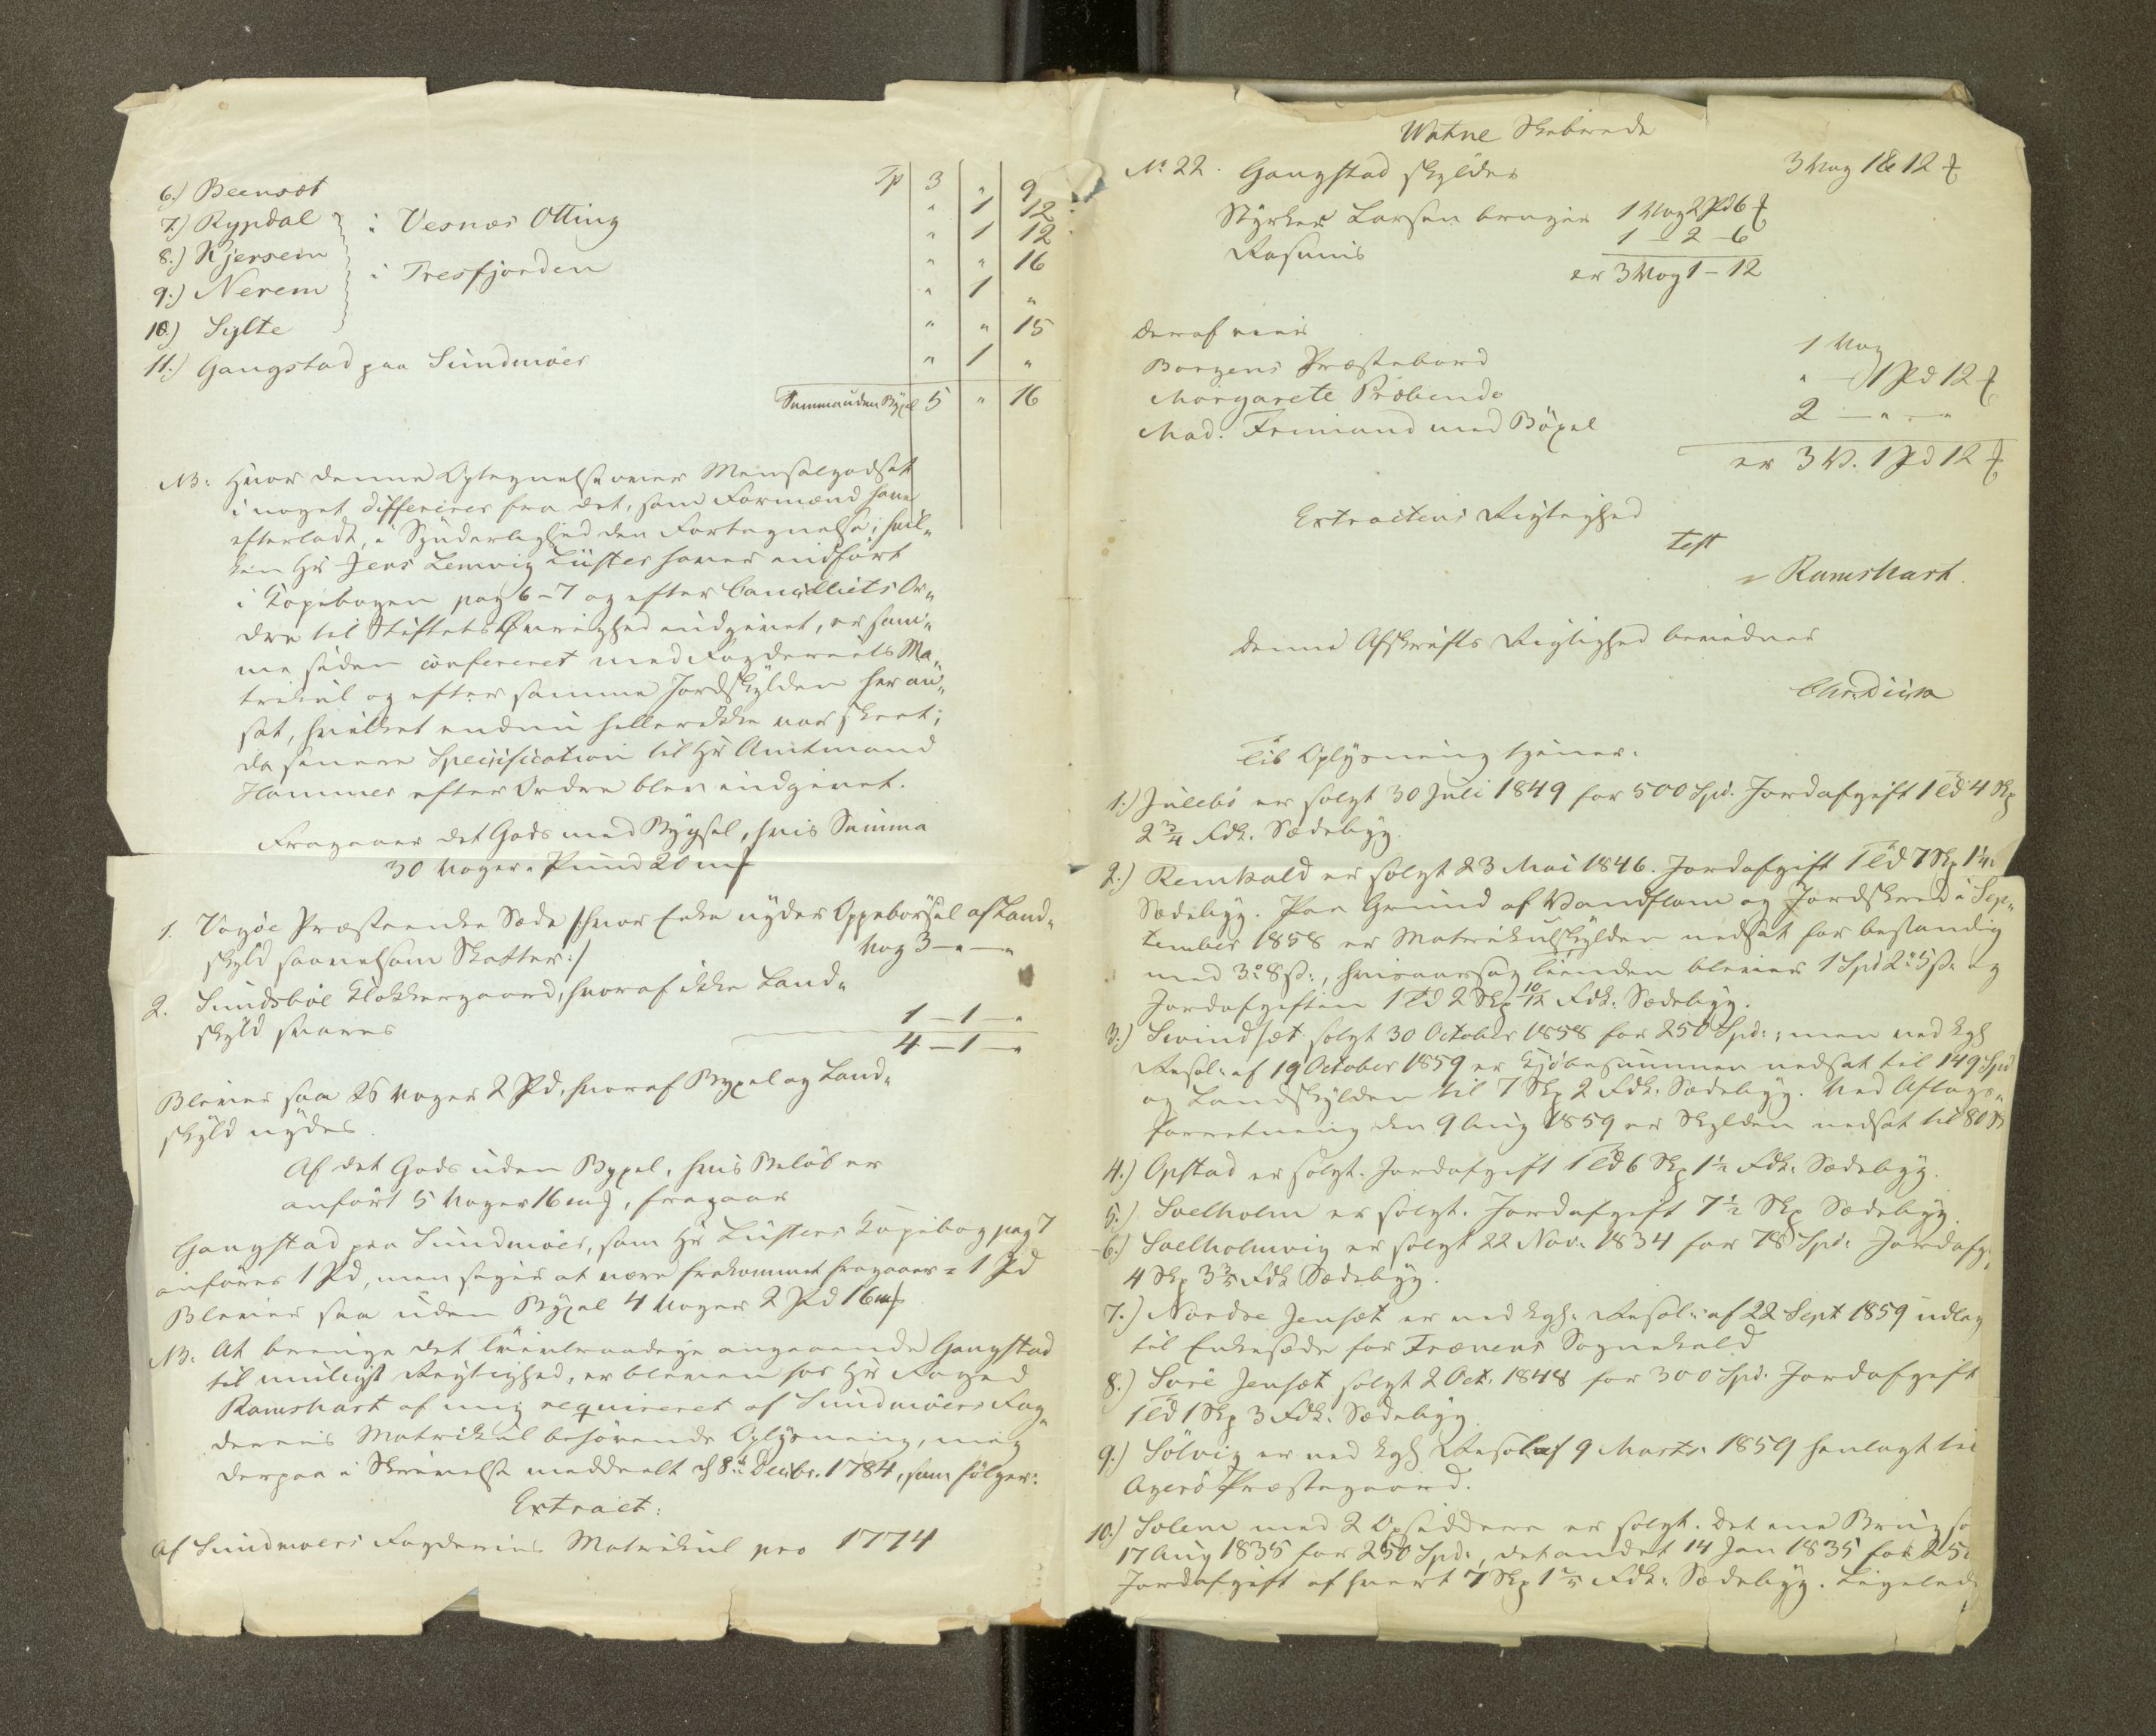 6.) Beensæt Tp 3 „ 9
7.) Rypdal i Vesnæs Otting „ 1 12
8.) Kjersem „ 1 12
9.) Nerem i Tresfjorden „ „ 16
„ 1 „
10.) Sylte „ „ 15
11.) Gangstad paa Sundmöer „ 1 „
Summa uden Byxel 5 „ 16
NB: Hvor denne Optegnelse over Mensalgodset
i noget differerer fra det, som Formænd have
efterladt, i Synderlighed den Fortegnelse, hvil„
ken Hr Jens Lemvig Lüster haver indført
i Kopibogen pag 6-7 og efter Cancelliets Or„
dre til Stiftets Øvrighed indgivet, er sam„
me siden confereret med Fogderiets Ma„
trikul og efter samme Jordskylden her an„
sat, hvilket endnu heller ikke var skeet;
da senere Specification til Hr Amtmand
Hammer efter Ordre blev indgivet.
Fragaaer det Gods med Bygsel, hvis Summa
30 Voger „ Pund 20 mf
1. Vogöe Præsteenke Sæde /:hvor Enke nyder Oppebørsel af Land„
skyld saavelsom Skatter:/ Vog 3 – „ – „
2. Sundsböe Klokkergaard, hvoraf ikke Land„
skyld svares 1 – 1 – „
4 – 1 – „
Bliver saa 25 Voger 2 Pd, hvoraf Byxel og Land„
skyld nydes.
Af det Gods uden Byxel, hvis Beløb er
anført 5 Voger 16 mf, fragaar
Gangstad paa Sundmöer, som Hr Lüsters Kopibog pag 7
anförer 1 Pd, men siger at være frakommet fragaaer = 1 Pd
Bliver saa uden Byxel 4 Voger 2 Pd 16 mf
NB: At bringe det tvivlraadige angaaende Gangstad
til muligst Rigtighed, er bleven hos Hr Foged
Ramshart af mig requireret af Sundmöers Fog„
deries Matrikul behørende Oplysning, mig
derpaa i Skrivelse meddeelt af 8de Decbr. 1784, som følger:
Extract:
Af Sundmoers Fogderies Matrikul pro 1774
Watne Skibrede
No 22. Gangstad skylder 3 Vog 1 12
Styrker Larsen bruger 1 Vog 2 Pd 6
Rasmus 1 – 2 – 6
er 3 Vog 1 – 12
deraf eier
Borgens Præstebord 1 Vog
Margarete Præbende „ – 1 Pd 12
Mad. Frimand med Böxel 2 – „ – „
er 3 V. 1 Pd 12
Extractens Rigtighed
test
Ramshart.
Denne Afskrifts Rigtighed bevidner
Til Oplysning tjener.
1.) Julebö er solgt 30 Juli 1849 for 500 Spd. Jordafgift 1 Td 4 Skp
2 3/4 Fdk. Sædebyg.
2.) Remkald er solgt 23 Mai 1846. Jordafgift 1 Td 7 Skp 1 1/4
Sædebyg. Paa Grund af Vandflom og Jordskred i Sep„
tember 1858 er Matrikulskylden nedsat for bestandig
med 3 8 ß:, hvisaarsag Tienden bliver 1 Spd 2 5 ß: og
Jordafgiften 1 Td 2 Skp 10/12 Fdk. Sædebyg.
3.) Svindsæt solgt 30 October 1858 for 250 Spd:; men ved kgl
Resol. af 19 October 1859 er Kjöbesummen nedsat til 149 Spd
og Landskylden til 7 Skp 2 Fdk. Sædebyg. Ved Aftags„
forretning den 9 Aug 1859 er Skylden nedsat til 80 ß
4.) Opstad er solgt. Jordafgift 1 Td 6 Skp 1 1/2 Fdk. Sædebyg.
5.) Soelholm er solgt. Jordafgift 7 1/2 Skp Sædebyg.
6.) Soelholmvig er solgt 22 Nov. 1834 for 78 Spd. Jordafg.
4 Skp 3 3/5 Fdk Sædebyg.
7.) Nordre Jensæt er ved kgl. Resol. af 22 Sept 1859 udlag
til Enkesæde for Frænens Sognekald
8.) Søre Jensæt solgt 2 Oct. 1848 for 300 Spd. Jordafgift
1 Td 1 Skp 3 Fdk. Sædebyg.
9.) Sölvig er ved kgl Resol af 9 Marts 1859 henlagt til
Agerö Præstegaard.
10.) Solem med 2 Opsiddere er solgt. Det ene Brug so
17 Aug 1835 for 250 Spd., det andet 14 Jan 1835 for 25
Jordafgift af hvert 7 Skp 1 2/5 Fdk. Sædebyg. Ligeled